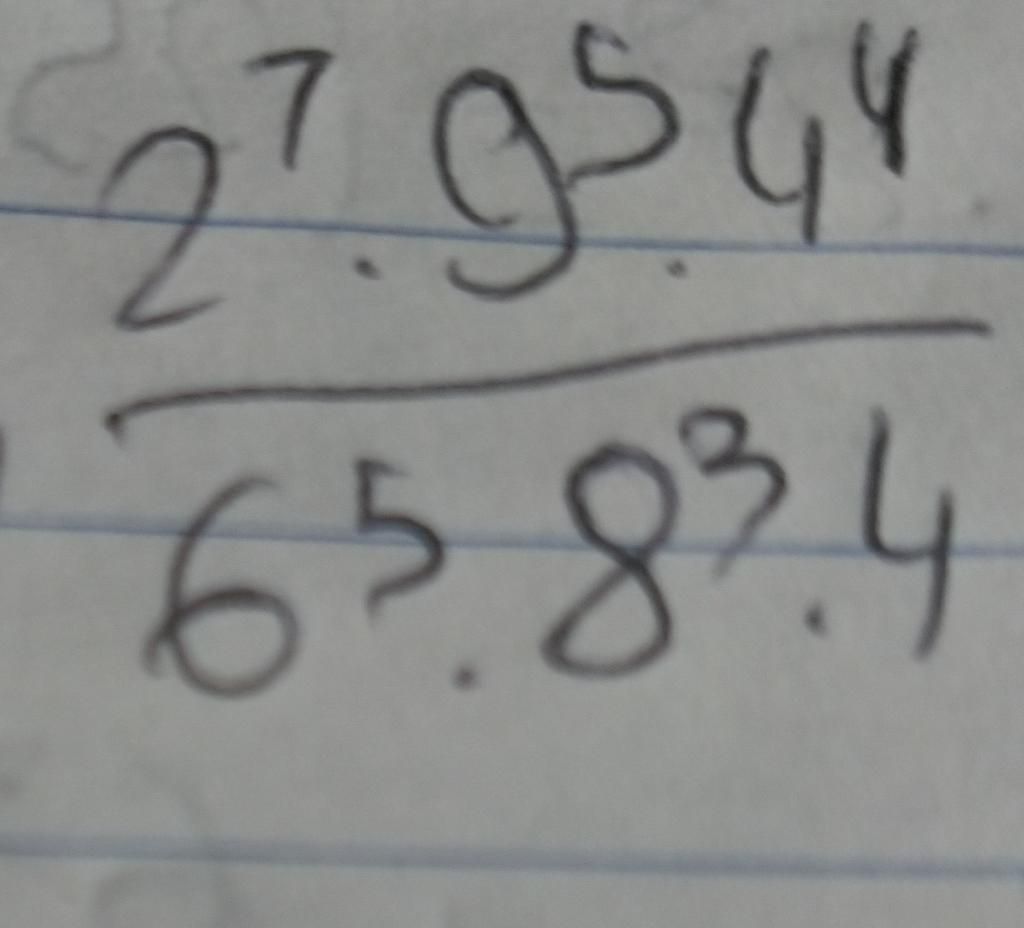 2⁷ . 9⁵ . 4⁴
6⁵ . 8³ . 4